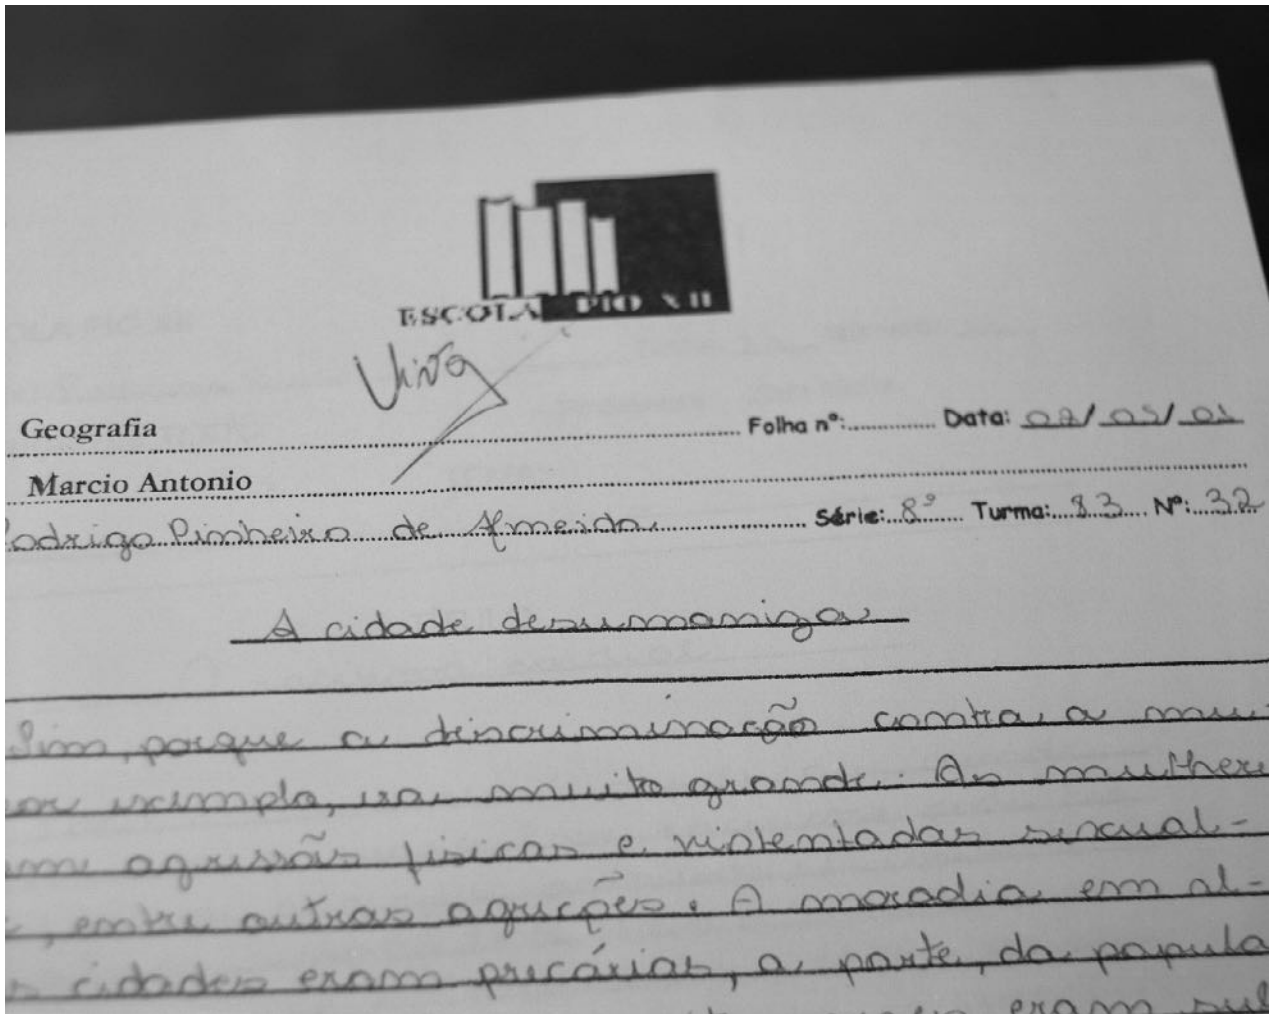 ESCOLA PIO XII
Visto
Geografia Folha nº: Data: 02/05/01
Marcio Antonio
Rodrigo Pinheiro de Almeida Série: 8ª Turma: 83 Nº: 32
A cidade desumaniza
Sim, porque a discriminação contra a mu
por exemplo, era muito grande. As mulhere
agressões físicas e violentadas sexual-
, entre outras agreções. A moradia em al-
s cidades eram precárias, a parte, da popula
eram sub